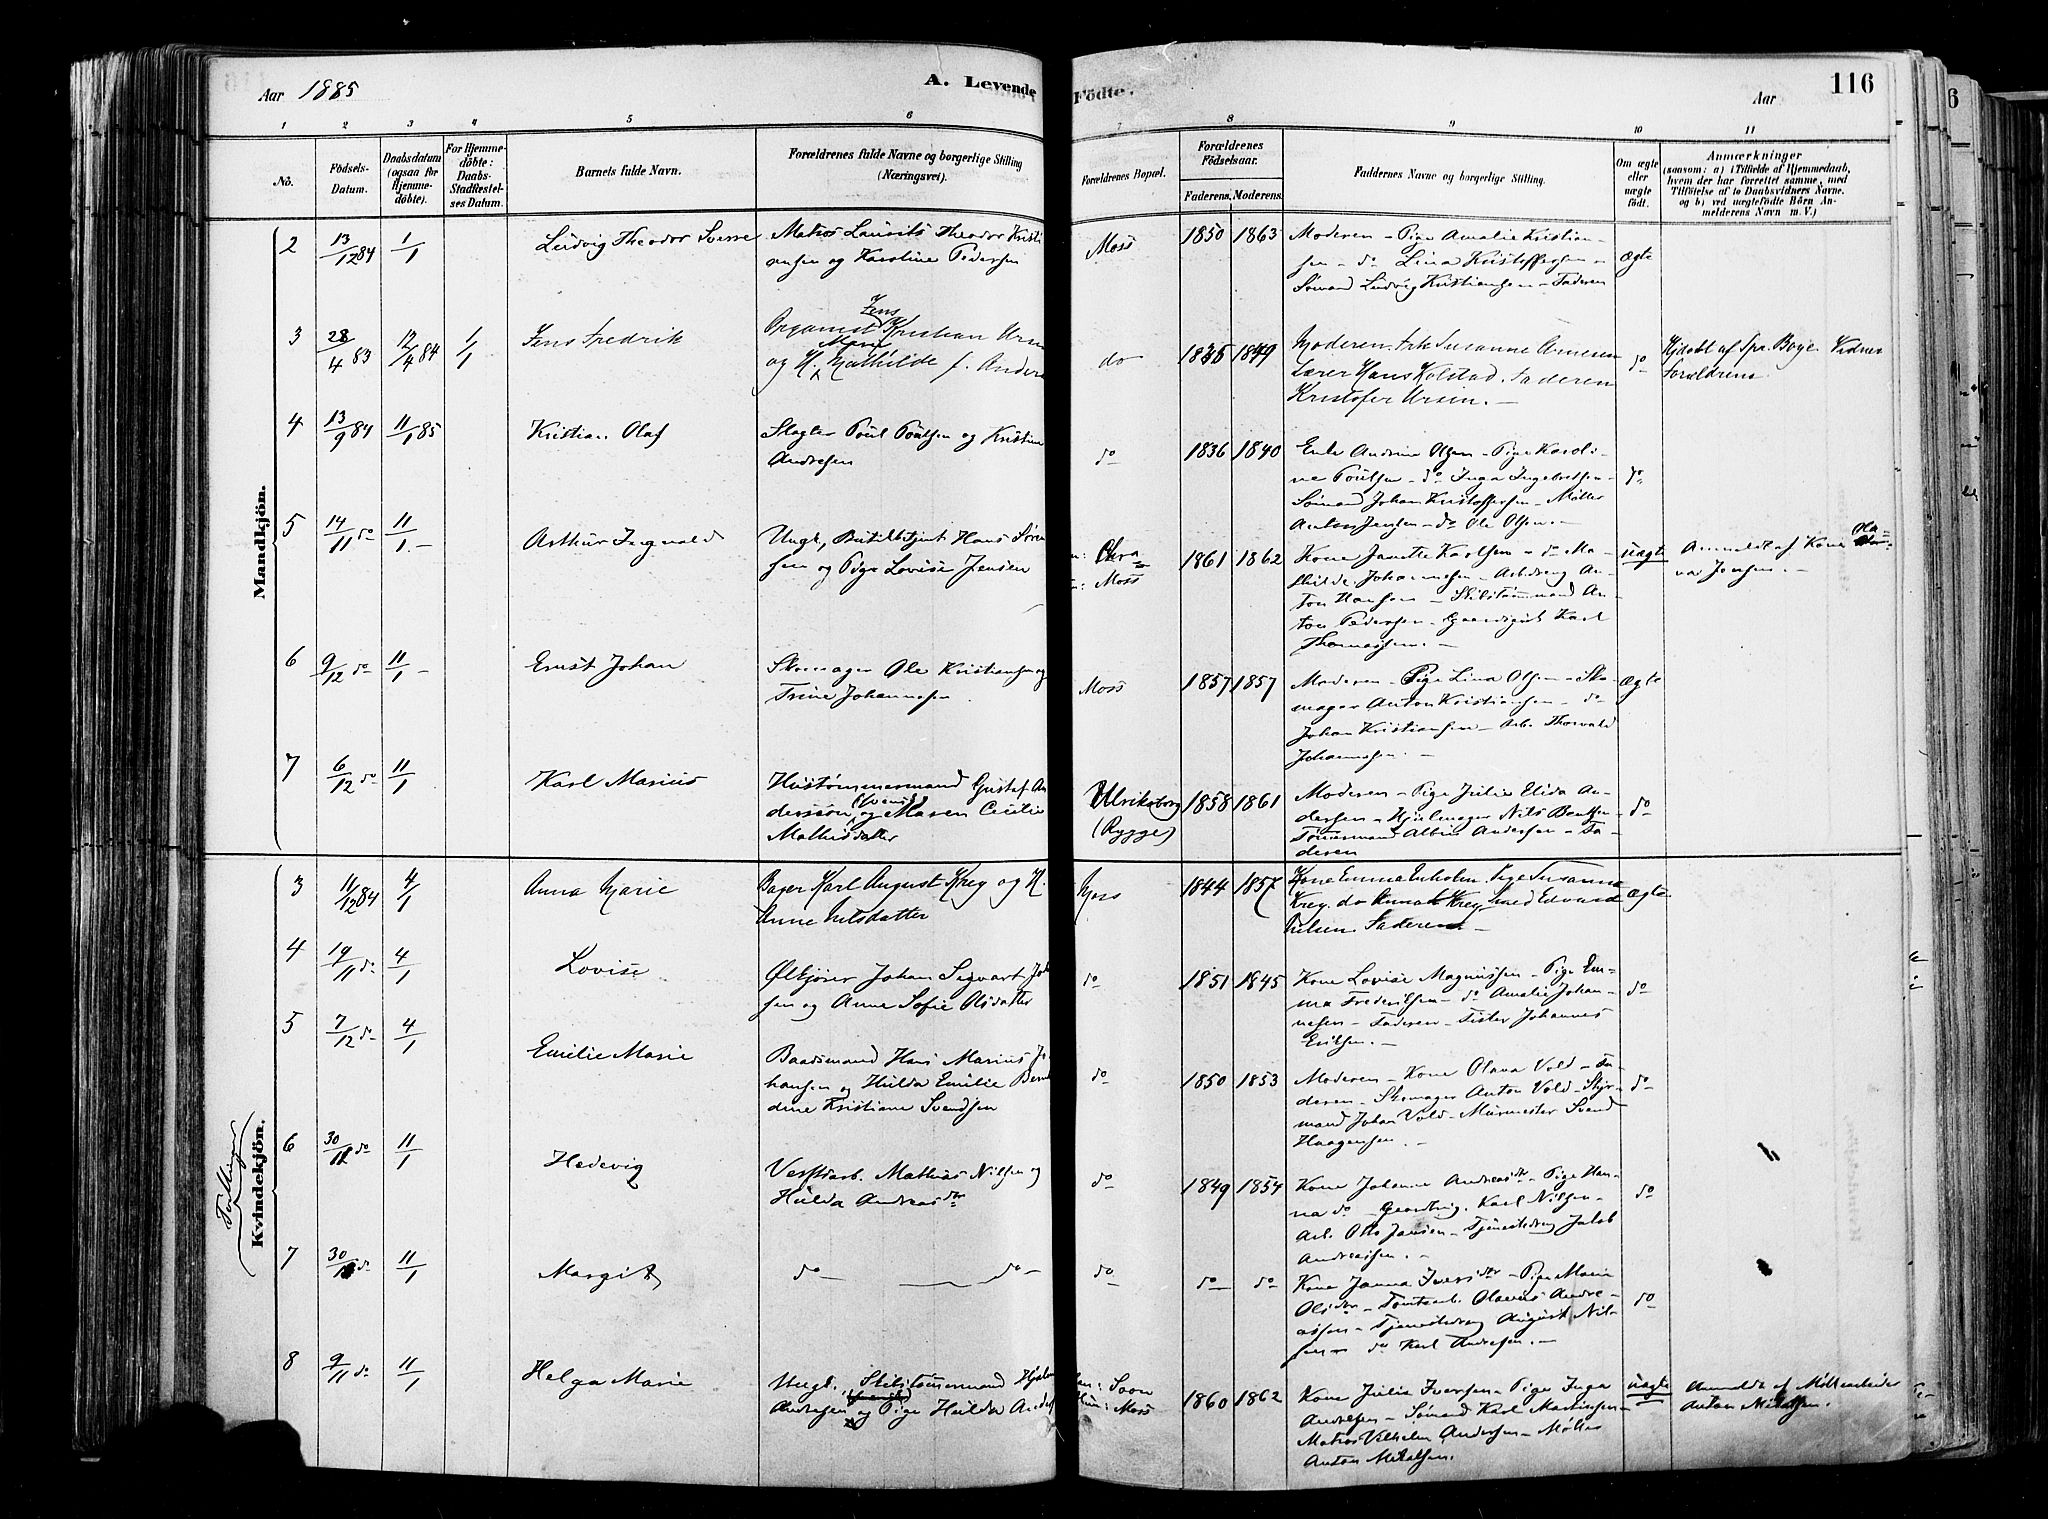 Aar 1885
A. Levende
Fødte.
Aar
116
1 2 3 4 5 6 7 8 9 10 11
No.
Fødsels-
Datum.
Daabsdatum
(ogsaa for
Hjemme-
døbte).
For Hjemme-
døbte:
Daabs-
Stadfæstel-
ses Datum.
Barnets fulde Navn.
Forældrenes fulde Navne og borgerlige Stilling
(Næringsvei).
Forældrenes Bopæl.
Forældrenes
Fødselsaar.
Faderens. Moderens.
Faddernes Navne og borgerlige Stilling.
Om ægte
eller
uægte
født.
Anmærkninger
(saasom: a) i Tilfælde af Hjemmedaab,
hvem der har forrettet samme, med
Tilføielse af to Daabsvidners Navne.
og b) ved uægtefødte Børn An-
melderens Navn m. V.)
Mandkjön.
2 13/12 84 1/1 Ludvig Theodor Sverre
Matros Laurits Theodor Kristi
ansen og Karoline Pedersen
Moss 1850 1863
Moderen - Pige Amalie Kristian-
sen - do Lina Kristoffersen -
Sömand Ludvig Kristiansen - Faderen
Ægte
3 28/4 83 12/4 84 1/1 Jens Fredrik
Jens
Organist Kristian Ursin
Marie
og H. Mathilde f. Anders
do 1835 1849
Moderen, Frk Susanne Arnesen
Lærer Hans Kolstad, Faderen
Kristofer Ursin. -
do
Hjdøbt af Spr. Boye Vidner
Forældrene
4 13/9 84 11/1 85 Kristian Olaf
Slagter Poul Poulsen og Kristine
Andresen
do 1836 1840
Enke Andrine Olsen - Pige Karoli-
ne Poulsen - do Inga Ingebretsen -
Sømand Johan Kristoffersen - Møller
Anton Jensen - do Ole Olsen. -
do
5 14/11 do 11/1 - Arthur Ingvald
Ungk. Butikbetjent Hans Søren
sen og Pige Lovise Jensen
Chra
Moss
1861 1862
Kone Janette Karlsen - do Ma-
thilde Johannesen - Arbdreng An-
ton Hansen - Skibstømmermand An-
ton Pedersen - Gaardsgut Karl
Thomassen. -
uægte
Anmeldt af Kone Ola-
va Jensen. -
6 9/12 do 11/1 - Ernst Johan
Skomager Ole Kristiansen og
Trine Johannesen
Moss 1857 1857
Moderen - Pige Lina Olsen - Sko-
mager Anton Kristiansen - do
Johan Kristiansen - Arb. Thorvald
Johannesen. -
Ægte
7 6/12 do 11/1 Karl Marius
Hustømmermand Gustaf An
dersson (svensk) og Maren Cecilie
Mathisdatter
Ulriksborg
(Rygge)
1858 1861
Moderen - Pige Julie Elida An-
dersen - Hjulmager Nils Bentsen -
Tømmermand Albin Andersen - Fa-
deren
do
Kvindekjön.
Tvillinger
3 11/12 84 4/1 Anna Marie
Bager Karl August Krey og H.
Anne Nilsdatter
Moss 1844 1857
Kone Emma Enholm, Pige Susanna
Krey do Anna Krey Smed Edvard
Nielsen Faderen -
Ægte
4 19/11 do 4/1 Lovise
Ølkjører Johan Sigvart Joh
sen og Anne Sofie Olsdatter
do 1851 1845
Kone Lovise Magnussen - Pige Em-
ma Frederiksen - do Amalie Johan-
nesen - Faderen - Fisker Johannes
Eriksen. -
do
5 7/12 do 4/1 Emilie Marie
Baadsmand Hans Marius Jo
hansen og Hulda Emilie Bern
dine Kristiane Svendsen
do 1850 1853
Moderen - Kone Olava Vold - Fa-
deren - Skomager Anton Vold - Styr-
mand Johan Vold - Murmester Svend
Haagensen. -
do
6 30/11 do 11/1 Hedevig
Verftsarb. Mathias Nilsen og
Hulda Andreasdtr
do 1849 1854
Kone Johanne Andreasdtr - Pige Han-
na do - Gaardbrug. Karl Nilsen -
Arb. Otto Jansen - Tjenestedreng Jakob
Andreassen. -
do
7 30/11 do 11/1 Margit
do - do -
do do do
Kone Janna Iversdtr - Pige Marie
Olsdtr - Tomtearb. Olaves Andre-
assen - Tjenestedreng August Nil-
sen - do Karl Andresen. -
do
8 9/11 do 11/1 Helga Marie
Ungk. Skibstømmermand Hjalm
Andresen og Pige Hulda Anders
Soon
Moss
1860 1862
Kone Julie Iversen - Pige Inga
Andresen - Sømand Karl Martinsen -
Matros Vilhelm Andersen - Møller
Anton Mikalsen.
uægte
Anmeldt af Møllearbeider
Anton Mikalsen.